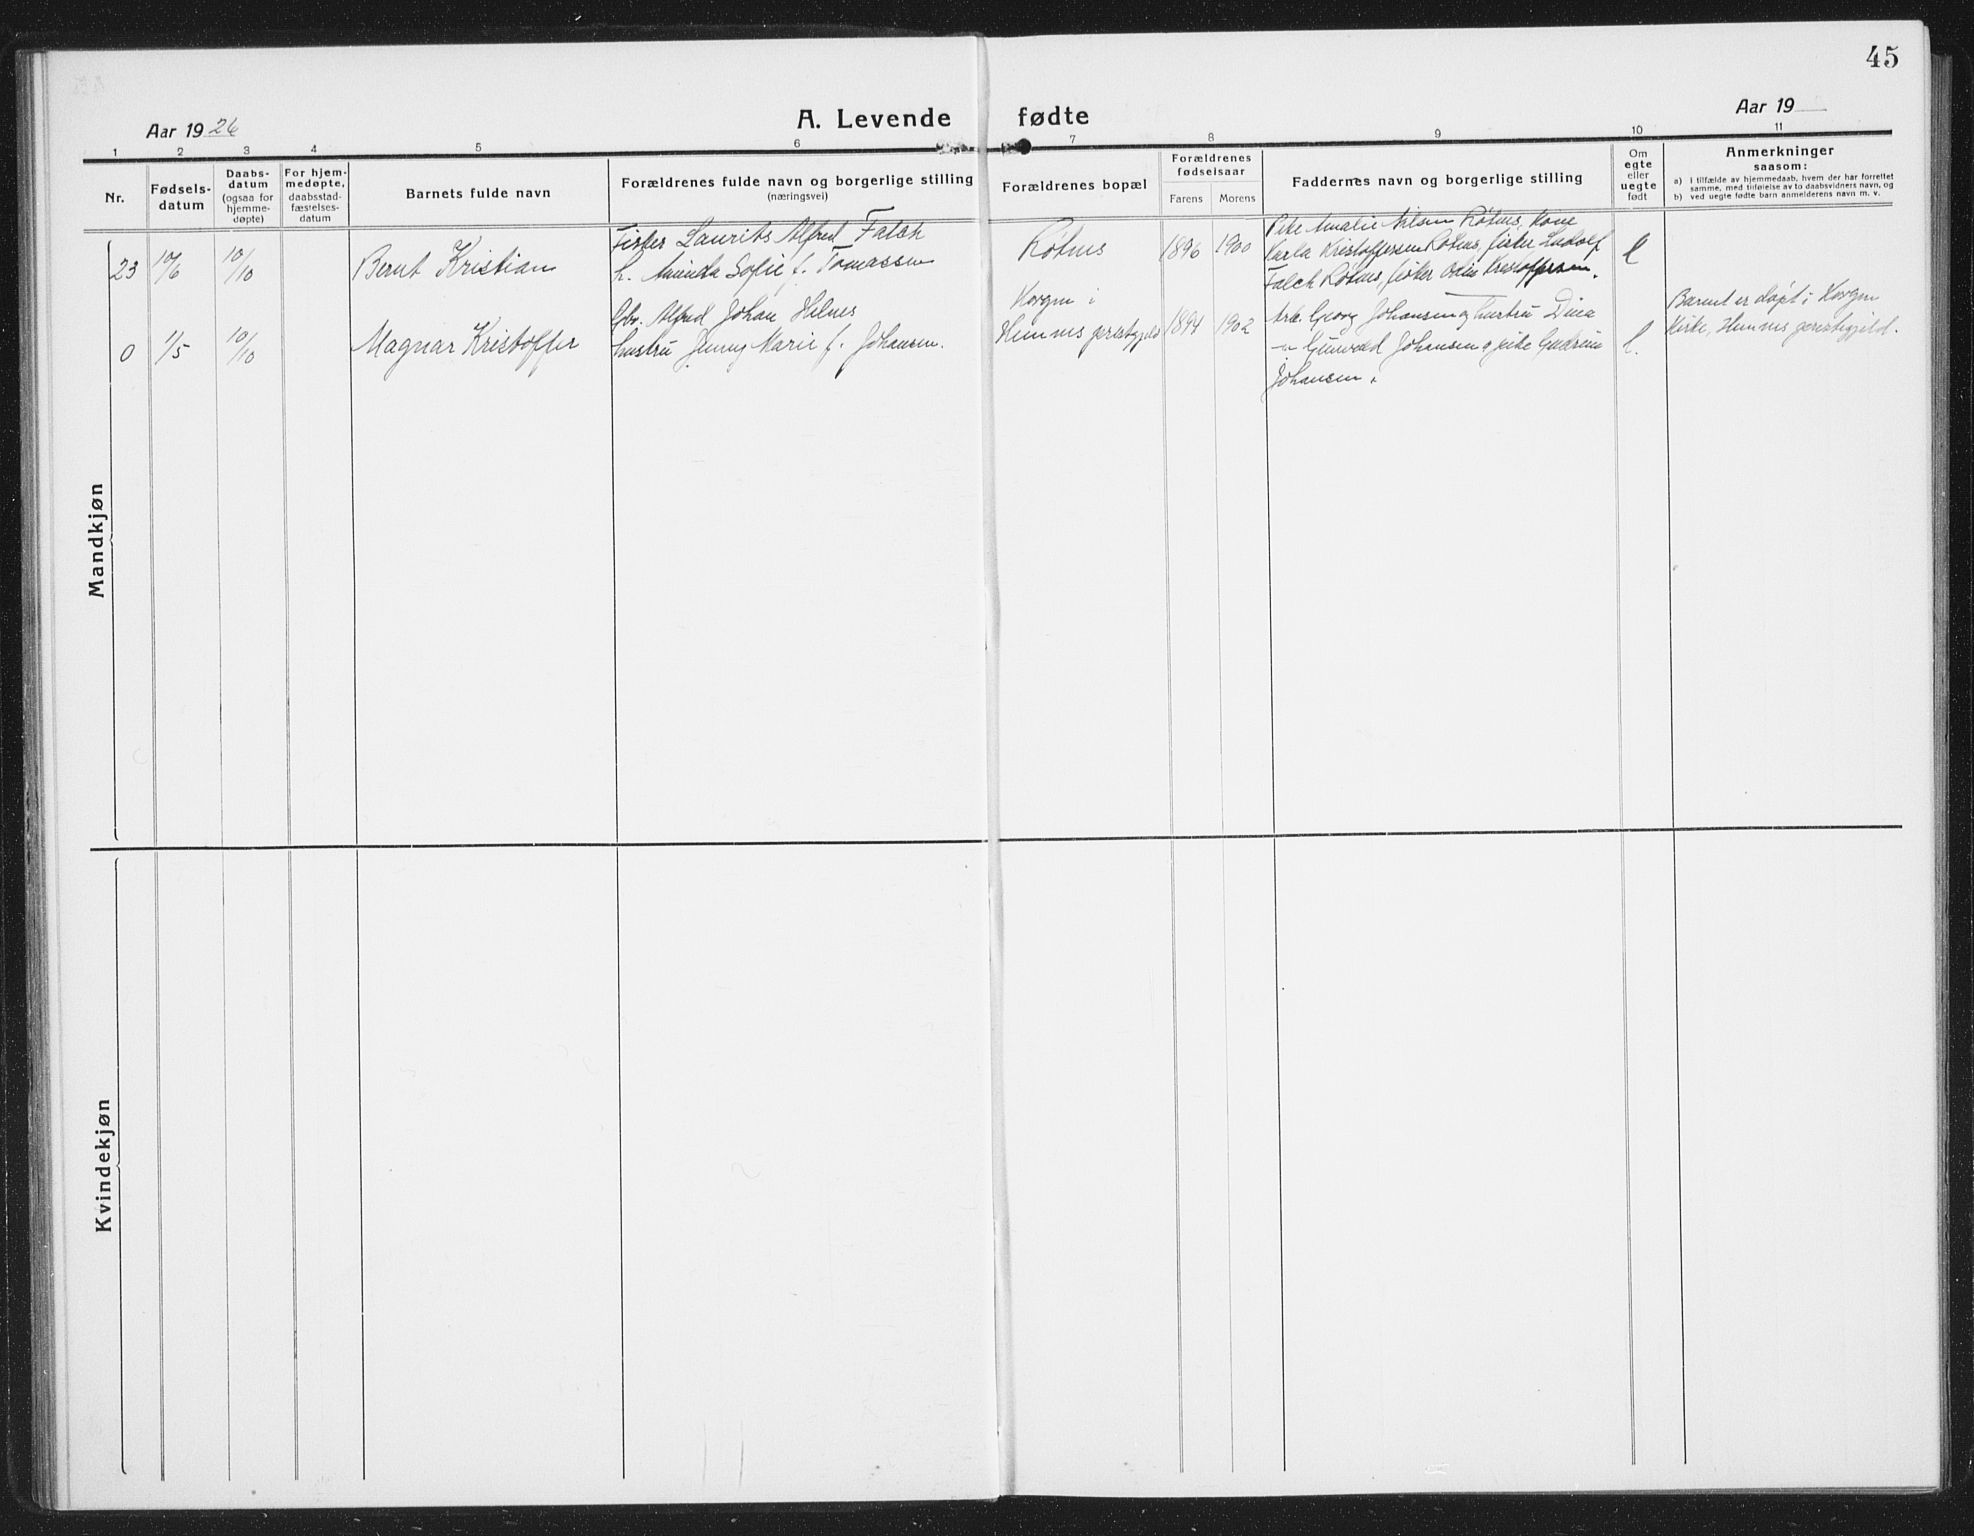 45
Aar 1926
A. Levende fødte
Aar 19
1 2 3 4 5 6 7 8 9 10 11
Nr.
Fødsels-
datum
Daabs-
datum
(ogsaa for
hjemme-
døpte)
For hjem-
medøpte,
daabsstad-
fæstelses-
datum
Barnets fulde navn
Forældrenes fulde navn og borgerlige stilling
(næringsvei)
Forældrenes bopæl
Forældrenes
fødselsaar
Farens Morens
Faddernes navn og borgerlige stilling
Om
egte
eller
uegte
født
Anmerkninger
saasom:
a) i tilfælde av hjemmedaab, hvem der har forrettet
samme, med tilføielse av to daabsvidners navn, og
b) ved uegte fødte barn anmelderens navn m. v.
Mandkjøn
23
10/6
10/10
Bernt Kristian
Fisker Laurits Alfred Falch
h. Aminda Sofie f. Tomassen
Røtnes
1896 1900
Pike Amalie Nilsen Røtnes, Kone
Karla Kristoffersen Røtnes, fisker Ludolf
Falch Røtnes, fisker Odin Kristoffersen.
e
0
1/5
10/10
Magnar Kristoffer
Gbr. Alfred Johan Hilnes
hustru Jenny Marie f. Johansen.
Korgen i
Hemnes prestegjeld
1894 1902
Arb. Georg Johansen og hustru Dina
-"- Gunvald Johansen og pike Gudrun
Johansen.
e.
Barnet er døpt i Korgen
Kirke, Hemnes prestegjeld.
Kvindekjøn